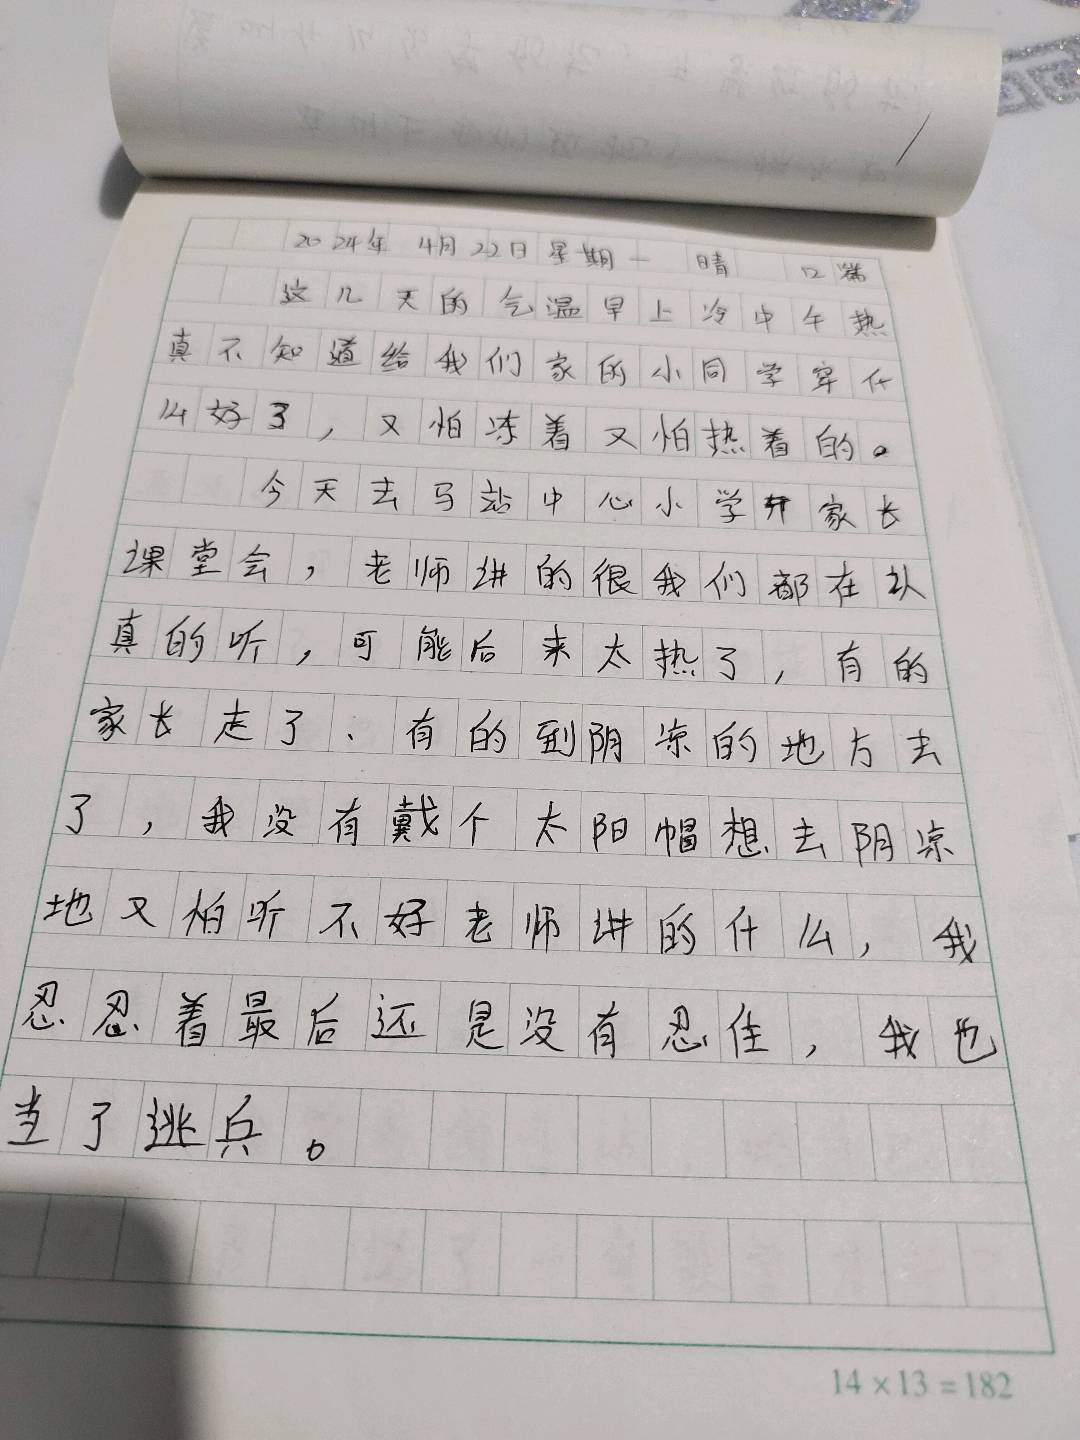 2024年 4月22日 星期一 晴 口端
这几天的气温早上冷中午热
真不知道给我们家的小同学穿什
么好了，又怕冻着又怕热着的。
今天去马站中心小学开家长
课堂会，老师讲的很我们都在认
真的听，可能后来太热了，有的
家长走了、有的到阴凉的地方去
了，我没有戴个太阳帽想去阴凉
地又怕听不好老师讲的什么，我
忍忍着最后还是没有忍住，我也
当了逃兵。
14×13=182